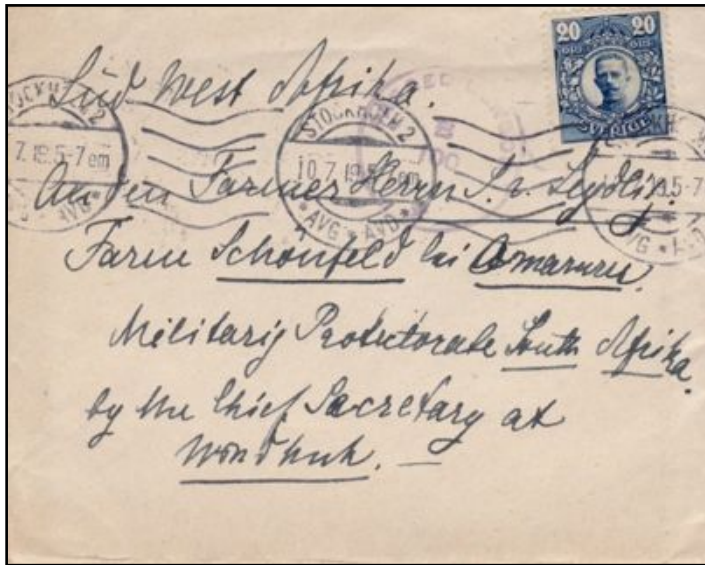 20 20
SVERIGE
STOCKHOLM 2
10.7.19.5-7 em
* AVG * AVD *
Süd West Afrika.
An den Farmer Herrn S. v. Seydlitz.
Farm Schönfeld bei Omaruru.
Militarij Protectorate South Afrika.
by the Chief Secretary at
Windhuk. —